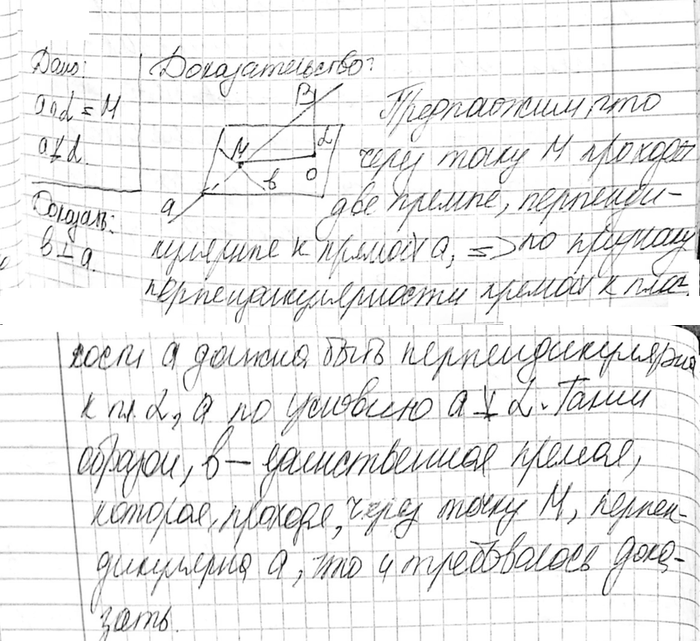 Дано:
a∩α = M
a⊥̸α.
Доказать:
в⊥a.
Доказательство:
B
M
α
O
в
a
Предположим, что
через точку M проходят
две прямые, перпенди-
кулярные к прямой a, => по признаку
перпендикулярности прямой к плос-
кости a должна быть перпендикулярна
к пл. α, а по условию a⊥̸α. Таким
образом, в – единственная прямая,
которая, проходя, через точку M, перпен-
дикулярна a, что и требовалось дока-
зать.